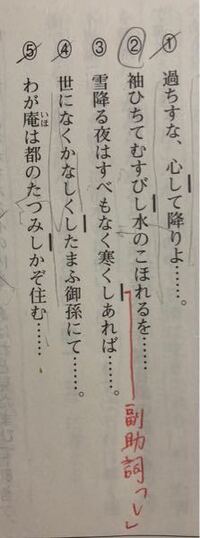 ① 過ちすな、心して降りよ……。
② 袖ひちてむすびし水のこほれるを……
③ 雪降る夜はすべもなく寒くしあれば……。
④ 世になくかなしくしたまふ御孫にて……。
⑤ わが庵は都のたつみしかぞ住む……
いほ
副助詞「し」